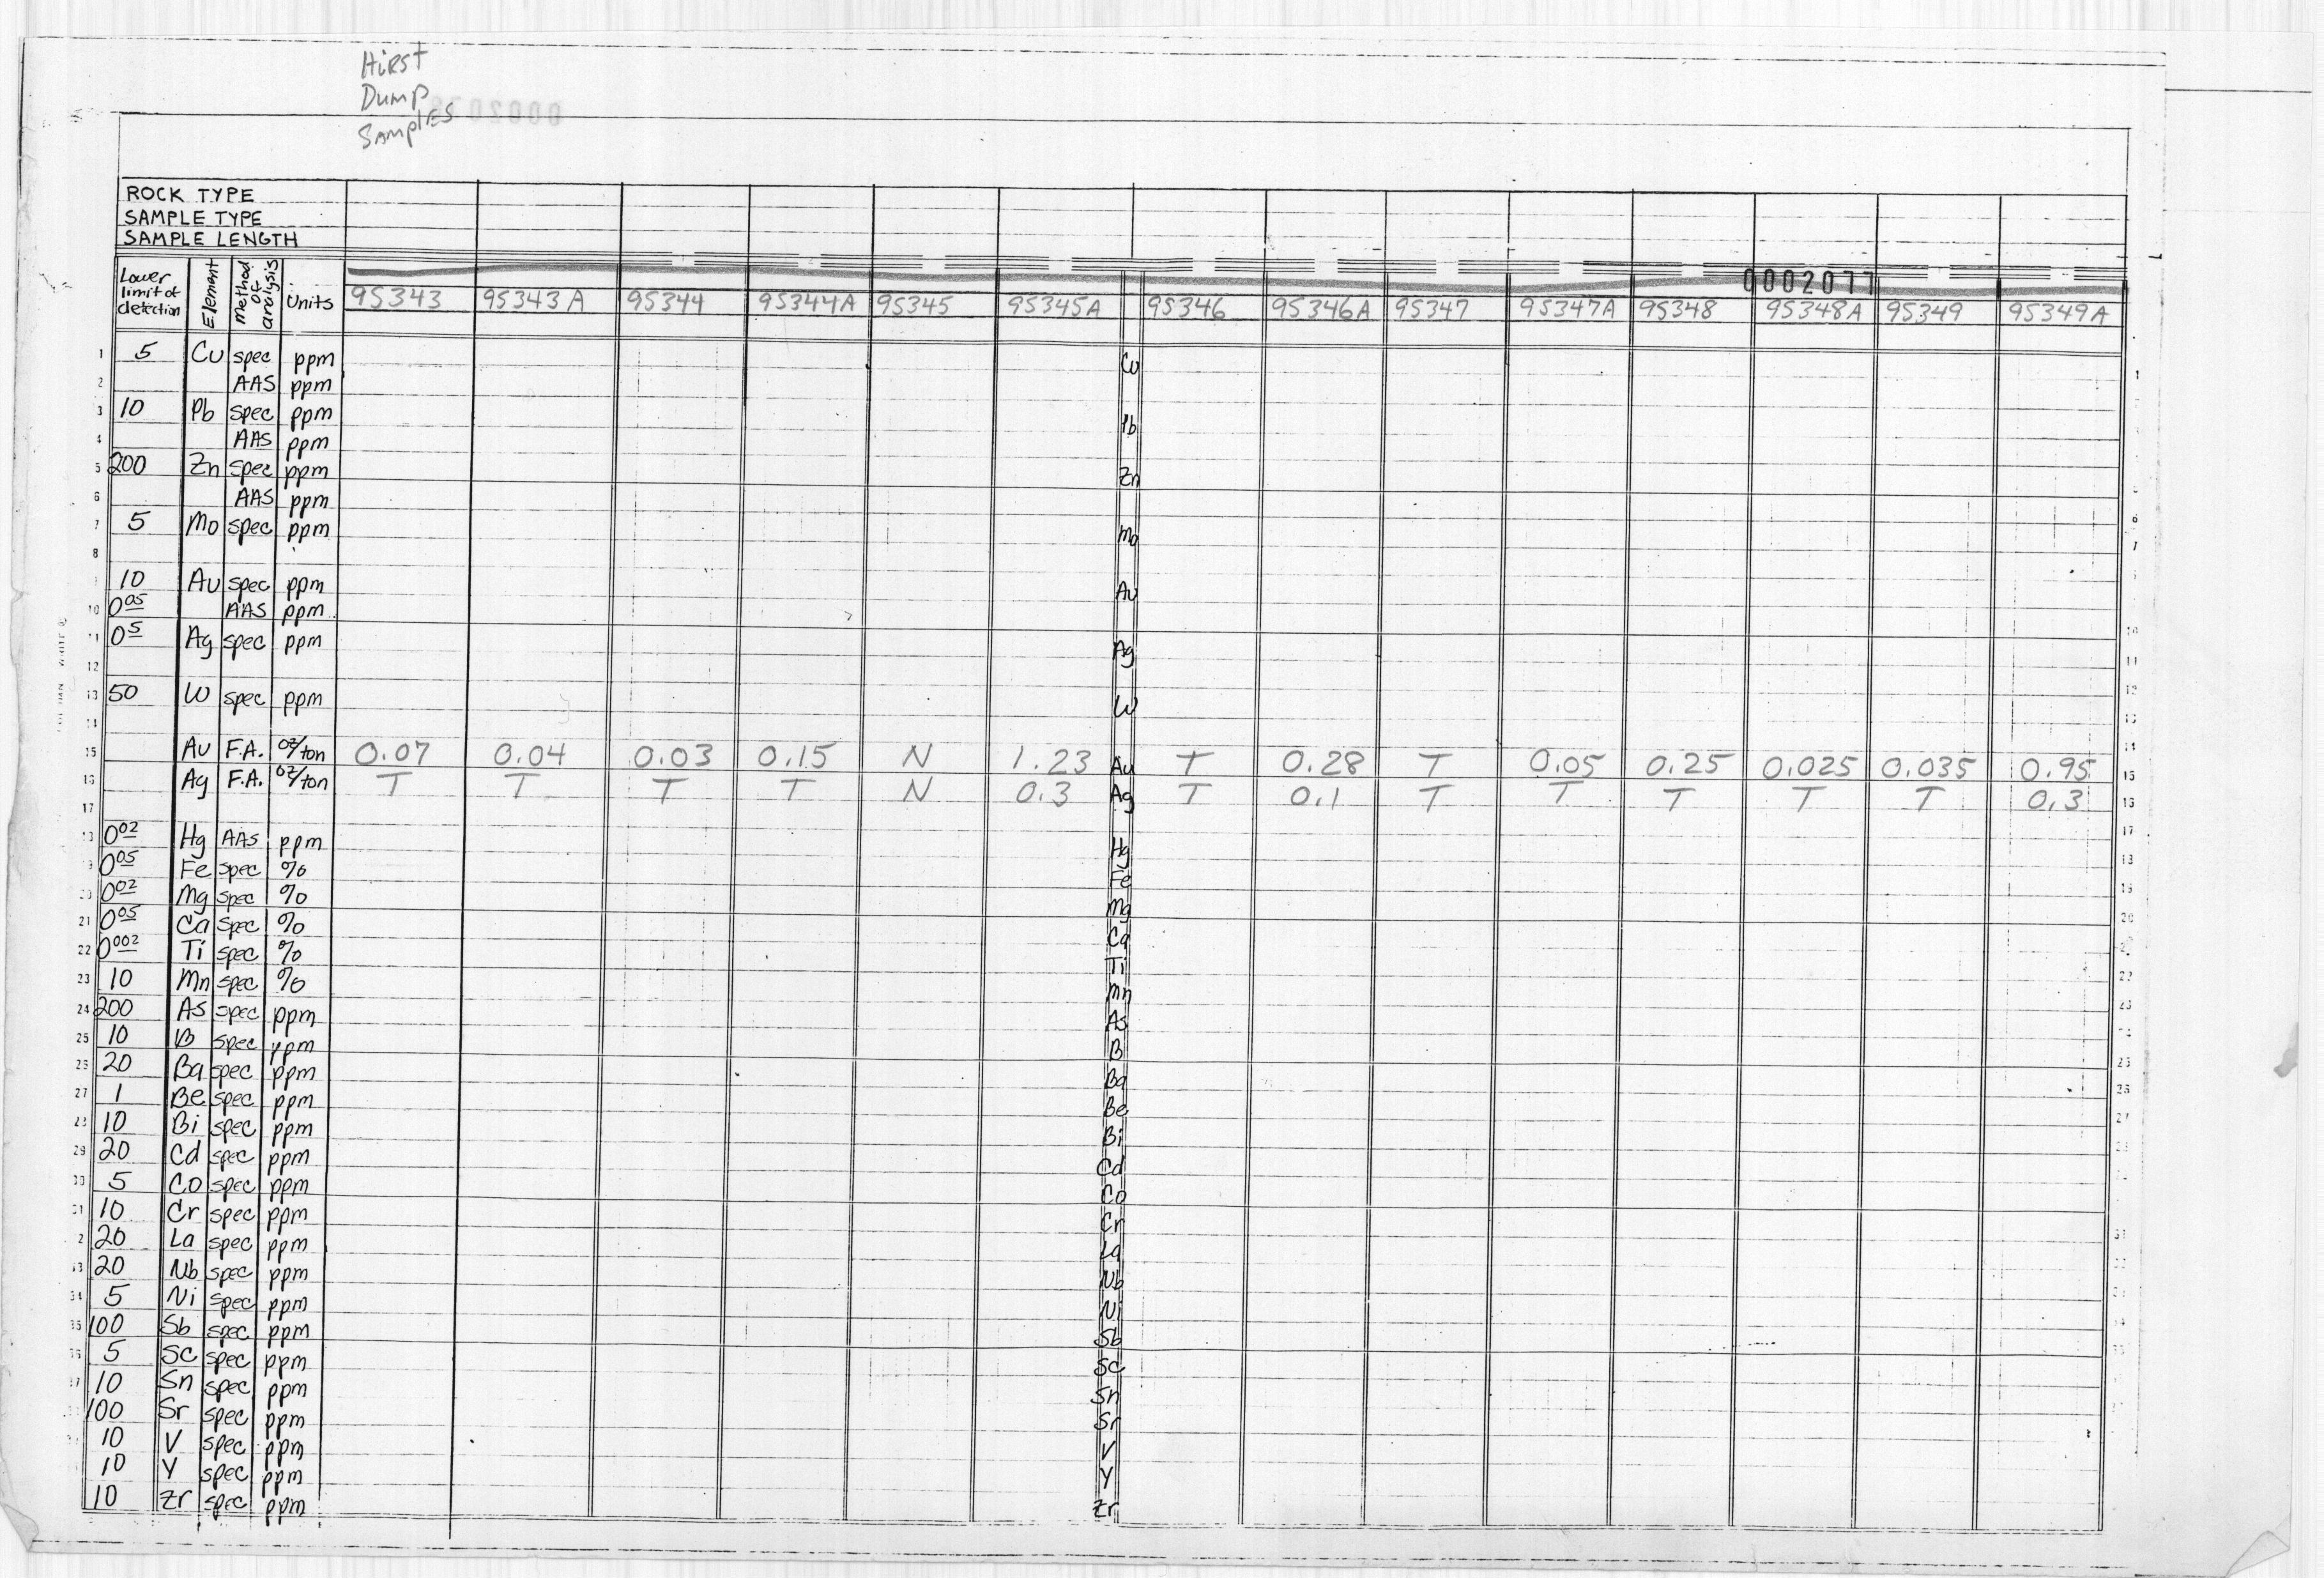 Hirst
Dump
Samples
ROCK TYPE
SAMPLE TYPE
SAMPLE LENGTH
0002077
Lower limit of detection Element Method of analysis Units 95343 95343A 95344 95344A 95345 95345A 95346 95346A 95347 95347A 95348 95348A 95349 95349A
1 5 Cu spec ppm Cu
2 AAS ppm
3 10 Pb spec ppm Pb
4 AAS ppm
5 200 Zn spec ppm Zn
6 AAS ppm
7 5 Mo spec ppm Mo
8
10 Au spec ppm Au
10 0.05 AAS ppm
11 0.5 Ag spec ppm Ag
12
13 50 W spec ppm W
14
15 Au F.A. oz/ton 0.07 0.04 0.03 0.15 N 1.23 Au T 0.28 T 0.05 0.25 0.025 0.035 0.95
16 Ag F.A. oz/ton T T T T N 0.3 Ag T 0.1 T T T T T 0.3
17
18 0.02 Hg AAS ppm Hg
9 0.05 Fe spec % Fe
20 0.02 Mg spec % Mg
21 0.05 Ca spec % Ca
22 0.002 Ti spec % Ti
23 10 Mn spec % Mn
24 200 As spec ppm As
25 10 B spec ppm B
26 20 Ba spec ppm Ba
27 1 Be spec ppm Be
28 10 Bi spec ppm Bi
29 20 Cd spec ppm Cd
30 5 Co spec ppm Co
31 10 Cr spec ppm Cr
2 20 La spec ppm La
33 20 Nb spec ppm Nb
34 5 Ni spec ppm Ni
35 100 Sb spec ppm Sb
36 5 Sc spec ppm Sc
37 10 Sn spec ppm Sn
100 Sr spec ppm Sr
10 V spec ppm V
10 Y spec ppm Y
10 Zr spec ppm Zr